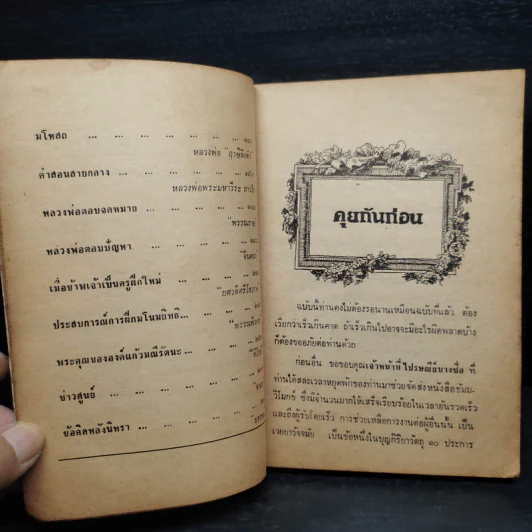 มโหสถ ... ... ... ... ... ...
หลวงพ่อ "ฤาษีลิงดำ"
คำสอนสายกลาง ... ... ... ...
หลวงพ่อพระมหาวีระ ถาวโร
หลวงพ่อตอบจดหมาย ... ... ...
"พรรณราย"
หลวงพ่อตอบปัญหา ... ... ...
เมื่อข้าพเจ้าเป็นครูฝึกใหม่ ... ...
ประสบการณ์การฝึกมโนมยิทธิ... ...
พระคุณขององค์แก้วมณีรัตนะ ... ...
ข่าวศูนย์ ... ... ... ... ...
ข้อคิดหลังนิทรา ... ... ... ...
คุยกันก่อน
ฉบับนี้ท่านคงไม่ต้องรอนานเหมือนฉบับที่แล้ว ต้อง
เรียกว่าเร็วเกินคาด ถ้าเร็วเกินไปอาจจะมีอะไรผิดพลาดบ้าง
ก็ต้องขออภัยต่อท่านด้วย
ก่อนอื่น ขอขอบคุณเจ้าหน้าที่ไปรษณีย์บางซื่อ ที่
ท่านได้สละเวลาหยุดพักของท่านมาช่วยจัดส่งหนังสือธัมม-
วิโมกข์ ซึ่งมีจำนวนมากให้เสร็จเรียบร้อยในเวลาอันรวดเร็ว
และถึงผู้รับโดยเร็ว การช่วยเหลือการงานต่อผู้อื่นนั้น เป็น
เวยยาวัจจมัย เป็นข้อหนึ่งในบุญกิริยาวัตถุ ๑๐ ประการ